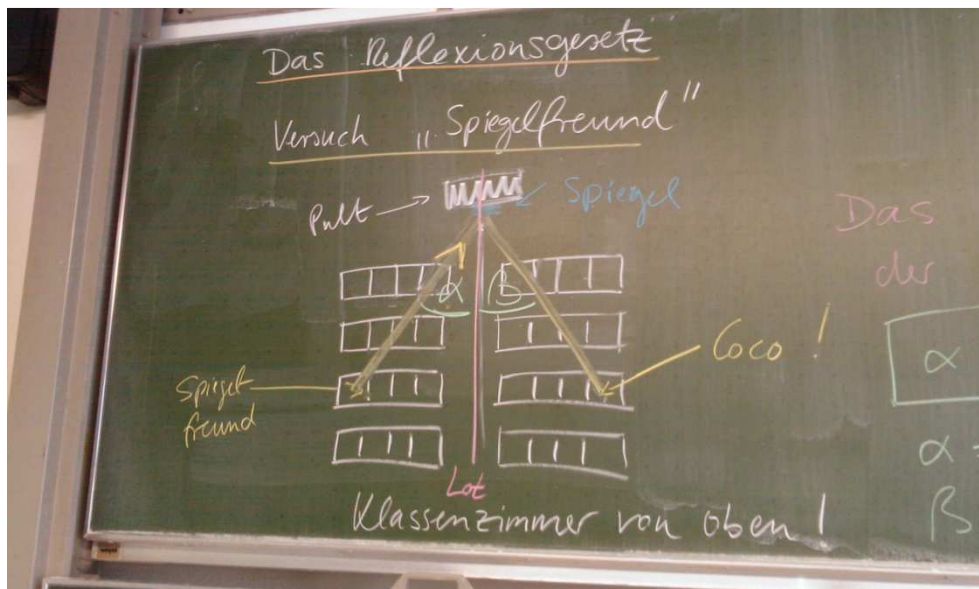 Das Reflexionsgesetz
Versuch „Spiegelfreund"
Pult
Spiegel
α
β
Coco !
Spiegel
freund
Lot
Klassenzimmer von oben !
Das
der
α
α =
β